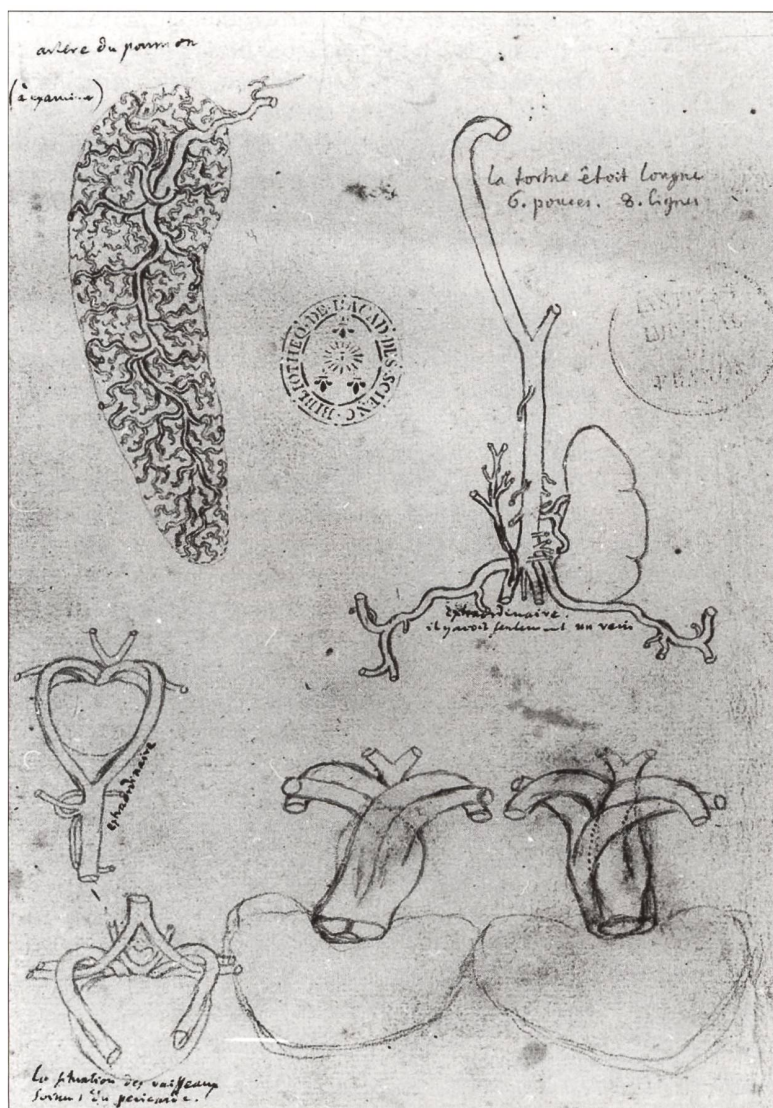 artère du poumon
(à examiner)
la tortue êtoit longue
6. pouces. 8. lignes
BIBLIOTHEQ·DE·L'ACAD·DES·SCIENC·
INSTITUT
FRANCE
extraordinaire.
il y avoit seulement un vein
extraordinaire
la situation des vaisseaux
du pericarde.